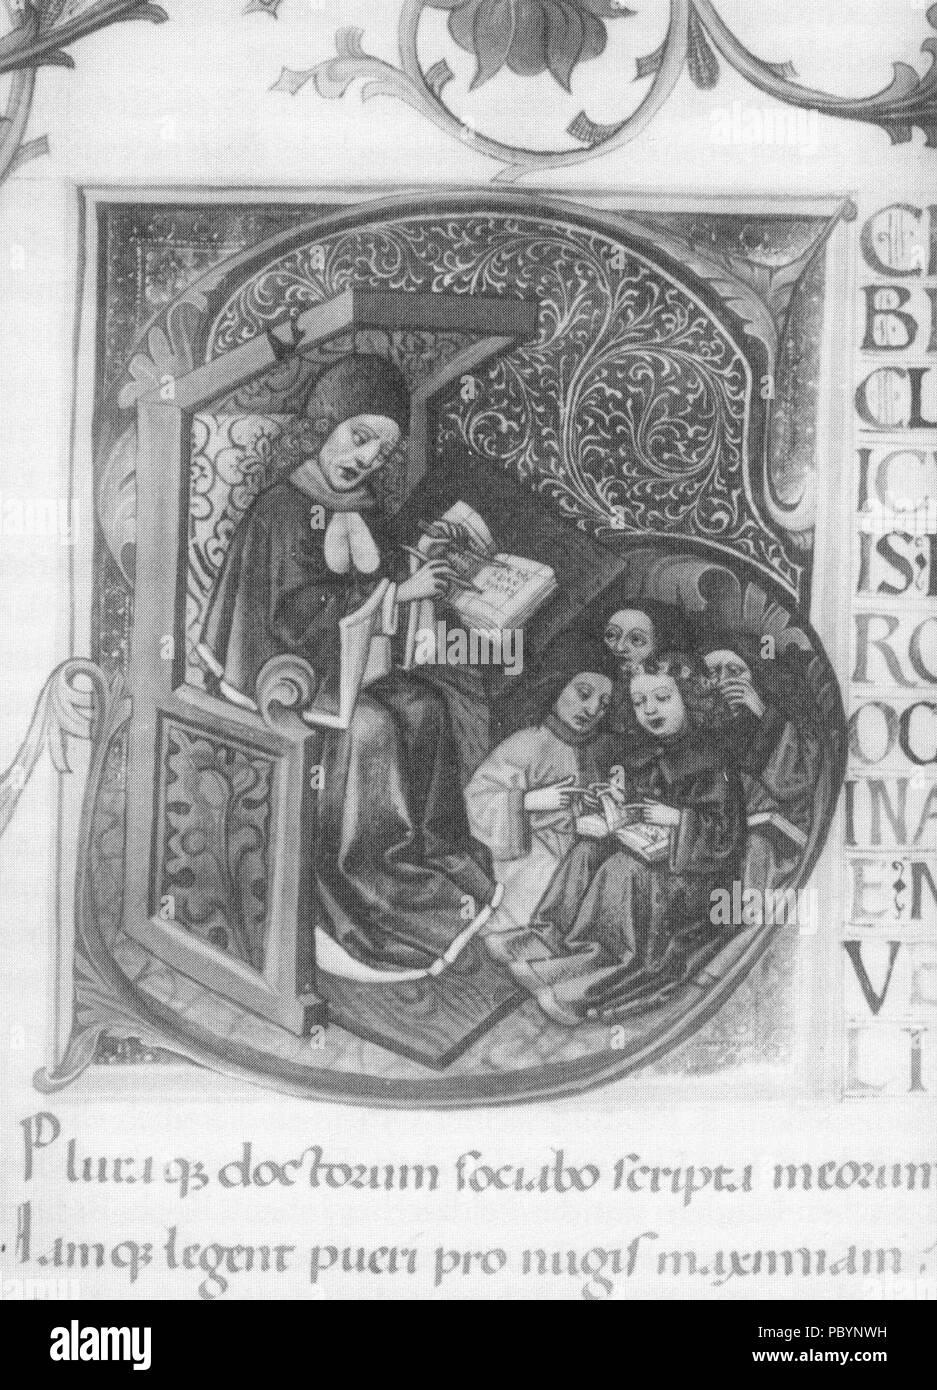 CE
BE
CL
IC
IS
RO
OC
INA
E:M
VE
LI
Pluraq; doctorum sociabo scripta meorum
Iamq; legent pueri pro nugis maximiam
alamy
Image ID: PBYNWH
www.alamy.com